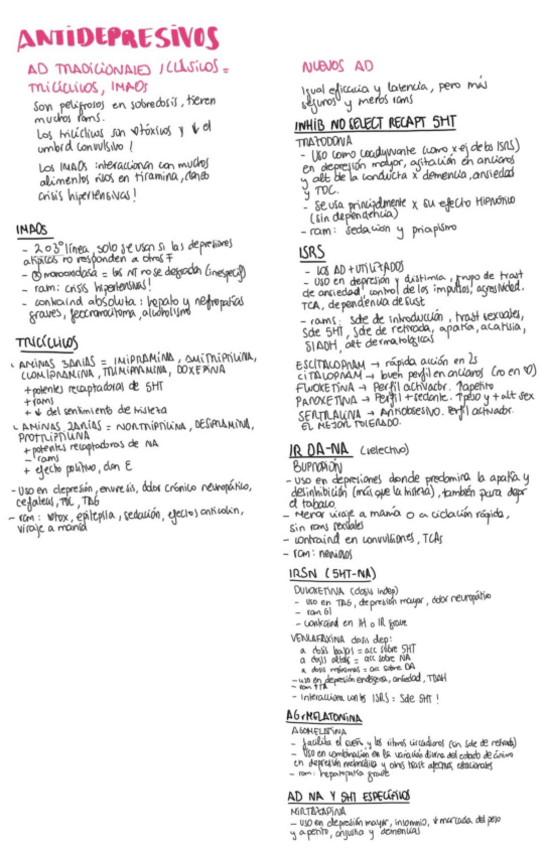 ANTIDEPRESIVOS
AD TRADICIONALES / CLÁSICOS =
TRICÍCLICOS, IMAOS
Son peligrosos en sobredosis, tienen
muchos rams.
Los tricíclicos son ♡tóxicos y ↓ el
umbral convulsivo!
Los IMAOs interaccionan con muchos
alimentos ricos en tiramina, dando
crisis hipertensivas!
IMAOS
- 2 o 3º línea, solo se usan si las depresiones
atípicas no responden a otros F
- ⊗ monoaminooxidasa = los NT no se degradan (inespecíf)
- ram: crisis hipertensivas!
- contraind absoluta: hepato y nefropatías
graves, feocromocitoma, alcoholismo
TRICÍCLICOS
· AMINAS 3ARIAS = IMIPRAMINA, AMITRIPTILINA,
CLOMIPRAMINA, TRIMIPRAMINA, DOXEPINA
+ potentes recaptadoras de 5HT
+ rams
+ ↓ del sentimiento de tristeza
· AMINAS 2ARIAS = NORTRIPTILINA, DESIPRAMINA,
PROTRIPTILINA
+ potentes recaptadoras de NA
- rams
+ efecto positivo, dan E
- Uso en depresión, enuresis, dolor crónico neuropático,
cefaleas, TOC, TAG
- ram: ♡tox, epilepsia, sedación, efectos anticolin,
viraje a manía
NUEVOS AD
Igual eficacia y latencia, pero más
seguros y menos rams
INHIB NO SELECT RECAPT 5HT
TRAZODONA
- Uso como coadyuvante (como x ej de los ISRS)
en depresión mayor, agitación en ancianos
y alt de la conducta x demencia, ansiedad
y TOC.
- Se usa principalmente x su efecto HIPNÓTICO
(sin dependencia)
- ram: sedación y priapismo
ISRS
- LOS AD + UTILIZADOS
- USO en depresión y distimia, grupo de trast
de ansiedad, control de los impulsos, agresividad.
TCA, dependencia de sust
- rams: Sde de introducción, trast sexuales,
Sde 5HT, Sde de retirada, apatía, acatisia,
SIADH, alt dermatológicas
ESCITALOPRAM → rápida acción en 2s
CITALOPRAM → buen perfil en ancianos (ro en ♡)
FLUOXETINA → Perfil activador. ↑apetito
PAROXETINA → Perfil + sedante. ↑peso y + alt sex
SERTRALINA → Antiobsesivo. Perfil activador.
EL MEJOR TOLERADO.
IR DA-NA (selectivo)
BUPROPIÓN
- uso en depresiones donde predomina la apatía y
desinhibición (más que la tristeza), también para dejar
el tabaco
- Menor viraje a manía o a ciclación rápida,
sin rams sexuales
- contraind en convulsiones, TCAs
- ram: nervios
IRSN (5HT-NA)
DULOXETINA (dosis indep)
- uso en TAG, depresión mayor, dolor neuropático
- ram GI
- contraind en IH o IR grave
VENLAFAXINA dosis dep:
a dosis bajas = acc sobre 5HT
a dosis altas = acc sobre NA
a dosis máximas = acc sobre DA
- uso en depresión endógena, ansiedad, TDAH
- ram ↑TA
- Interacciona con los ISRS = Sde 5HT!
AGOMELATONINA
AGOMELATINA
- facilita el sueño y los ritmos circadianos (sin sde de retirada)
- Uso en combinación en la variación diurna del estado de ánimo
en depresión melancólica y otros trast afectivos estacionales
- ram: hepatopatía grave
AD NA Y 5HT ESPECÍFICOS
MIRTAZAPINA
- uso en depresión mayor, insomnio, ↓ marcada del peso
y apetito, angustia y demencias